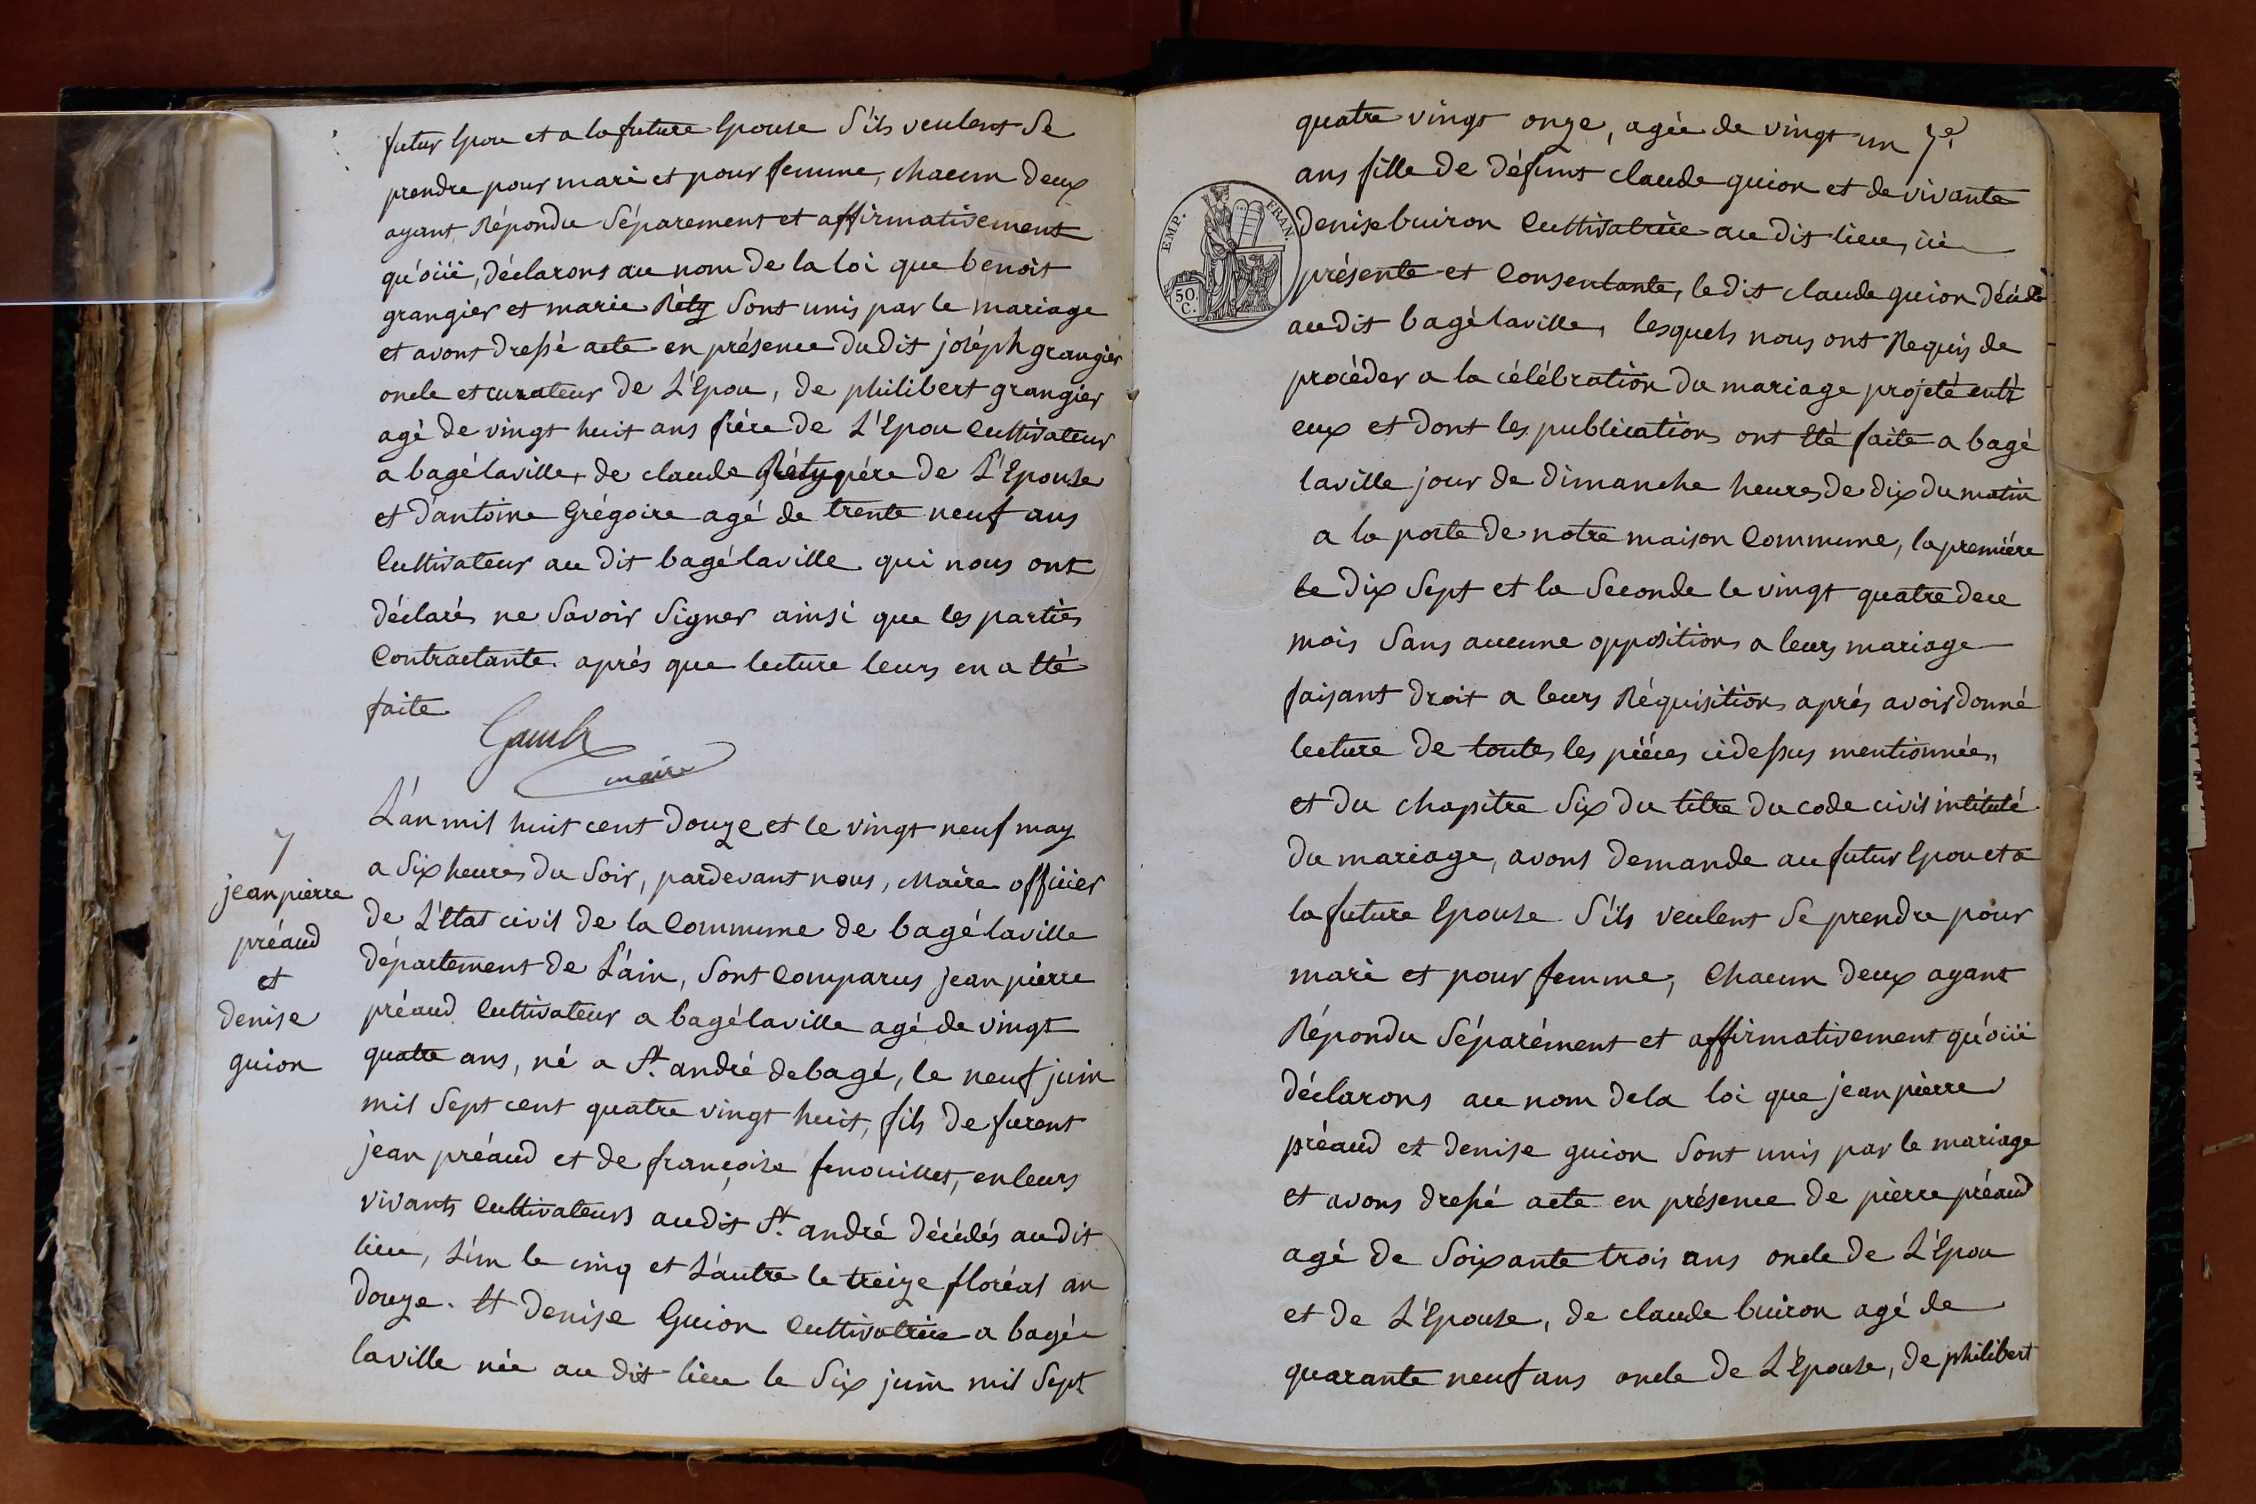 futur Epou et a la future Epouse S'ils veulent Se
prendre pour mari et pour femme, chacun deux
ayant Répondu Séparement et affirmativement
qu'oüi, déclarons au nom de la loi que benoit
grangier et marie Réty Sont unis par le mariage
et avons dressé acte en présence du dit joséph grangier
oncle et curateur de L'Epou, de philibert grangier
agé de vingt huit ans frére de L'Epou Cultivateur
a bagélaville, de claude Réty pére de L'Epouse
et d'antoine Grégoire agé de trente neuf ans
Cultivateur au dit bagélaville qui nous ont
déclarés ne Savoir Signer ainsi que les parties
Contractante après que lecture leurs en a Eté
faite
maire
7
jean pierre
préaud
et
denise
guion
L'an mil huit cent douze et le vingt neuf may
a Six heures du Soir, pardevant nous, Maire officier
de L'Etat civil de la Commune de bagélaville
département de L'ain, Sont Comparus jean pierre
préaud Cultivateur a bagélaville agé de vingt
quatre ans, né a St. andré debagé, le neuf juin
mil Sept cent quatre vingt huit, fils de furent
jean préaud et de françoise fenouillet, en leurs
vivants Cultivateurs audit St. andré décédés audit
lieu, L'un le cinq et L'autre le treize floréal an
douze. Et denise Guion Cultivatrice a bagé
laville née au dit lieu le Six juin mil Sept
quatre vingt onze, agée de vingt un 7e.
ans fille de défunt claude guion et de vivante
denise buiron Cultivatrice au dit lieu, ici
présente et Consentante, le dit claude guion décédé
audit bagélaville, lesquels nous ont Requis de
procéder a la célébration du mariage projeté entr
eux et dont les publications ont Eté faite a bagé
laville jour de dimanche heures de dix du matin
a la porte de notre maison Commune, la première
le dix Sept et la Seconde le vingt quatre de ce
mois Sans aucune oppositions a leurs mariage
faisant droit a leurs Réquisitions aprés avoir donné
lecture de toutes les piéces cidessus mentionnées,
et du chapitre Six du titre du code civil intitulé
du mariage, avons demande au futur Epou et a
la future Epouse S'ils veulent Se prendre pour
mari et pour femme, Chacun deux ayant
Répondu Séparément et affirmativement qu'oüi
déclarons au nom dela loi que jean pierre
préaud et denise guion Sont unis par le mariage
et avons dressé acte en présence de pierre préaud
agé de Soixante trois ans oncle de L'Epou
et de L'Epouse, de claude buiron agé de
quarante neuf ans oncle de L'Epouse, de philibert
EMP. FRAN.
50.
C.